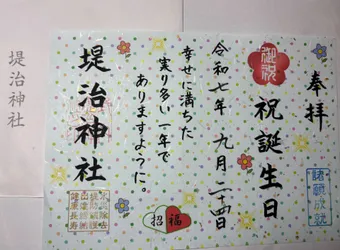 奉拝
御祝
祝誕生日
令和七年 九月二十四日
幸せに満ちた
実り多い一年で
ありますように。
堤治神社
招福
諸願成就
堤治神社